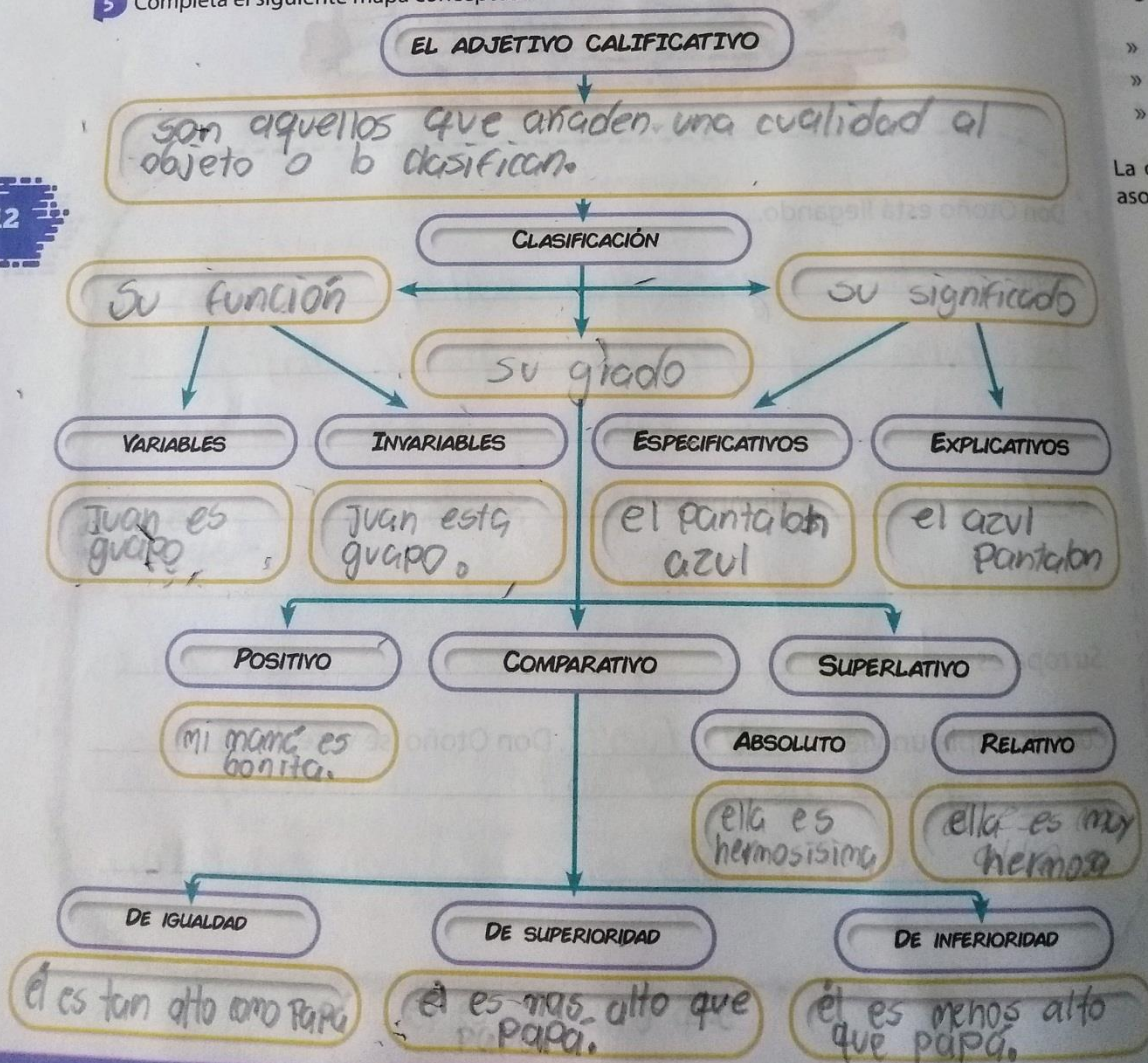 5 Completa el siguiente mapa
EL ADJETIVO CALIFICATIVO
son aquellos que añaden una cualidad al
objeto o lo clasifican.
La
aso
2
CLASIFICACIÓN
Su función
su significado
su grado
VARIABLES
INVARIABLES
ESPECIFICATIVOS
EXPLICATIVOS
Juan es
guapo
Juan esta
guapo.
el pantalon
azul
el azul
pantalon
POSITIVO
COMPARATIVO
SUPERLATIVO
mi mamá es
bonita.
ABSOLUTO
RELATIVO
ella es
hermosisima
ella es muy
hermosa
DE IGUALDAD
DE SUPERIORIDAD
DE INFERIORIDAD
él es tan alto como Papá
él es mas alto que
papá.
él es menos alto
que papá.